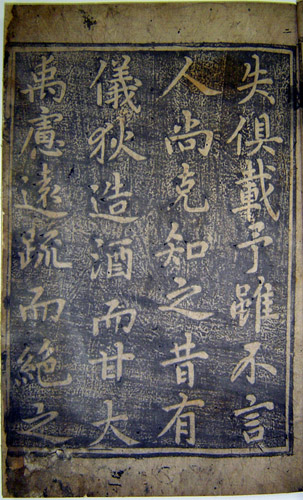 失俱載予雖不言
人尚克知之昔有
儀狄造酒而甘大
禹慮遠疏而絕之